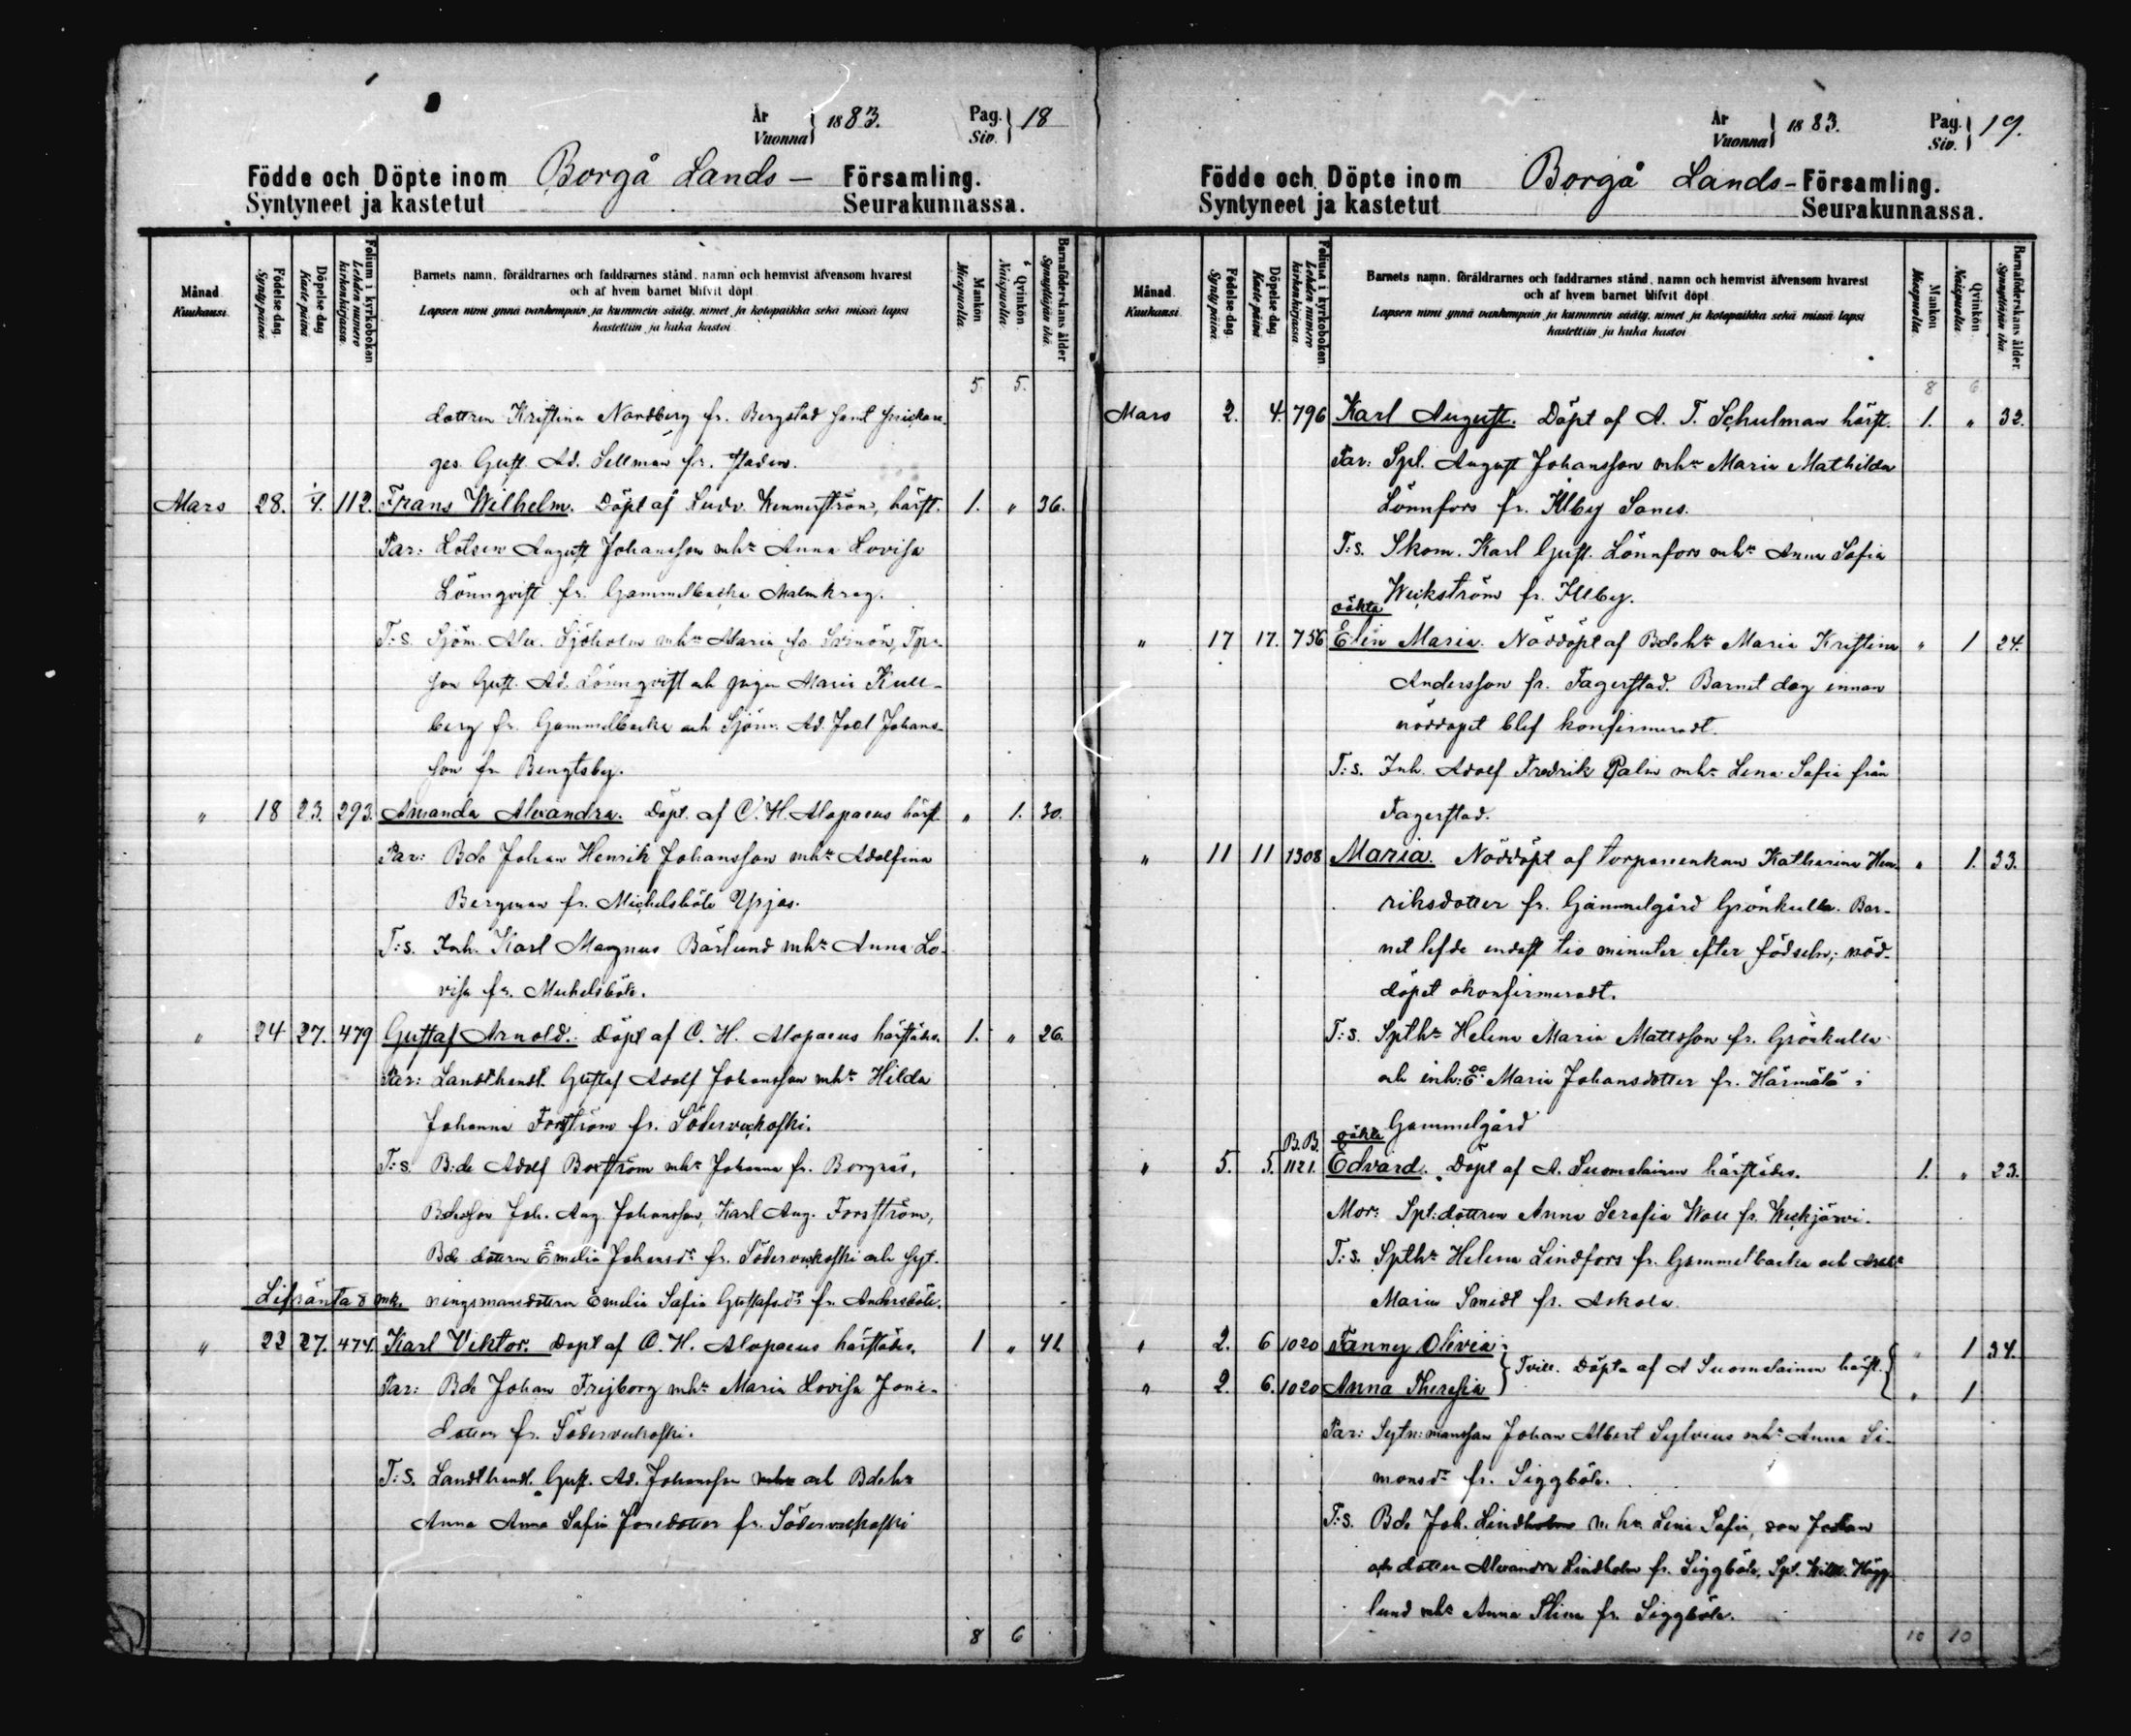 År
Vuonna } 1883.
Pag.
Siv. } 18
Födde och Döpte inom Borgå Lands- Församling.
Syntyneet ja kastetut Seurakunnassa.
Månad. Kuukausi.
Födelse dag. Syntypäivä.
Döpelse dag. Kaste päivä.
Folium i kyrkoboken. Lehden numero kirkonkirjassa.
Barnets namn, föräldrarnes och faddrarnes stånd, namn och hemvist äfvensom hvarest
och af hvem barnet blifvit döpt.
Lapsen nimi ynnä vanhempain ja kummein sääty, nimet ja kotopaikka sekä missä lapsi
kastettiin ja kuka kastoi.
Mankön. Miespuolia.
Qvinkön. Naispuolia.
Barnaföderskans ålder. Synnyttäjän ikä.
5. 5.
dottren Kristina Nordberg fr. Bergstad samt snickare
ges. Gust. Ad. Sellman fr. staden.
Mars 28. 4. 112. Frans Wilhelm. Döpt af Ludv. Wennerström, härst. 1. " 36.
Par: Lotsen August Johansson mhu Anna Lovisa
Lönnqvist fr. Gammelbacka Malmkrog.
T:s. Sjöm. Alex. Sjöholm mhu Maria fr. Svinön, Tp.
son Gust. Ad. Lönnqvist och pigan Maria Kull-
berg fr. Gammelbacka och Sjöm. Ad. Joel Johans-
son fr. Bengtsby.
" 18 23. 293. Amanda Alexandra. Döpt af C. H. Alopaeus härst. " 1. 30.
Par: Bde Johan Henrik Johansson mhu Adolfina
Bergman fr. Michelsböle Yrjas.
T:s. Inh. Karl Magnus Bärlund mhu Anna Lo-
visa fr. Michelsböle.
" 24 27. 479 Gustaf Arnold. Döpt af C. H. Alopaeus härstädes. 1. " 26.
Par: Landthandl. Gustaf Adolf Johansson mhu Hilda
Johanna Forsström fr. Söderveckoski.
T:s. B:de Adolf Boström mhu Johanna fr. Borgnäs,
Bdesson Joh. Aug. Johansson, Karl Aug. Forsström,
Bde dottren Emelia Johansdr fr. Söderveckoski och Syt.
Lifränta 8 mk. ningsmansdottern Emelia Sofia Gustafsdr fr. Andersböle.
" 22 27. 474. Karl Viktor. Döpt af C. H. Alopaeus härstädes. 1 " 42
Par: Bde Johan Frejborg mhu Maria Lovisa Jons-
dotter fr. Söderveckoski.
T:s. Landthandl. Gust. Ad. Johansson mhu och Bdehu
Anna Anna Sofia Jonsdotter fr. Söderveckoski
8 6
År
Vuonna } 1883.
Pag.
Siv. } 19.
Födde och Döpte inom Borgå Lands- Församling.
Syntyneet ja kastetut Seurakunnassa.
Månad. Kuukausi.
Födelse dag. Syntypäivä.
Döpelse dag. Kaste päivä.
Folium i kyrkoboken. Lehden numero kirkonkirjassa.
Barnets namn, föräldrarnes och faddrarnes stånd, namn och hemvist äfvensom hvarest
och af hvem barnet blifvit döpt.
Lapsen nimi ynnä vanhempain ja kummein sääty, nimet ja kotopaikka sekä missä lapsi
kastettiin ja kuka kastoi.
Mankön. Miespuolia.
Qvinkön. Naispuolia.
Barnaföderskans ålder. Synnyttäjän ikä.
8 6
Mars 2. 4. 796 Karl August. Döpt af A. T. Schulman härst. 1. " 32.
Par: Spl. August Johansson mhu Maria Mathilda
Lönnfors fr. Illby Sanes.
T:s. Skom. Karl Gust. Lönnfors mhu Anna Sofia
Weckström fr. Illby.
oäkta
" 17 17. 756 Elin Maria. Nöddöpt af Bdehu Maria Kristina " 1 24.
Andersson fr. Fagerstad. Barnet dog innan
nöddopet blef konfirmeradt.
T:s. Inh. Adolf Fredrik Palin mhu Lena Sofia från
Fagerstad.
" 11 11 1308 Maria. Nöddöpt af torpareenkan Katharina Hen- " 1. 33.
riksdotter fr. Gammelgård Grönkulla. Bar-
net lefde endast tio minuter efter födseln; nöd-
döpet okonfirmeradt.
T:s. Spthu Helena Maria Mattsson fr. Grönkulla
och inh: Ea Maria Johansdotter fr. Härmälä i
Gammelgård
B.B. oäkta
" 5. 5. 1121. Edvard. Döpt af A. Suomalainen härstädes. 1. " 23.
Mor: Spl:dottren Anna Serafia Wall fr. Weckjärvi.
T:s. Spthu Helena Lindfors fr. Gammelbacka och
Maria Smidt fr. Askola.
" 2. 6 1020 Fanny Olivia " 1 34.
Tvill. Döpta af A Suomalainen härst.
" 2. 6. 1020 Anna Theresia " 1
Par: Sytn:mansson Johan Albert Sylvius mhu Anna Si-
monsdr fr. Siggböle.
T:s. Bde Joh. Lindholm m. hu Lena Sofia, son Johan
och dotter Alexandra Lindholm fr. Siggböle, Spl. Wilh. Hägg-
lund mhu Anna Stina fr. Siggböle.
10 10